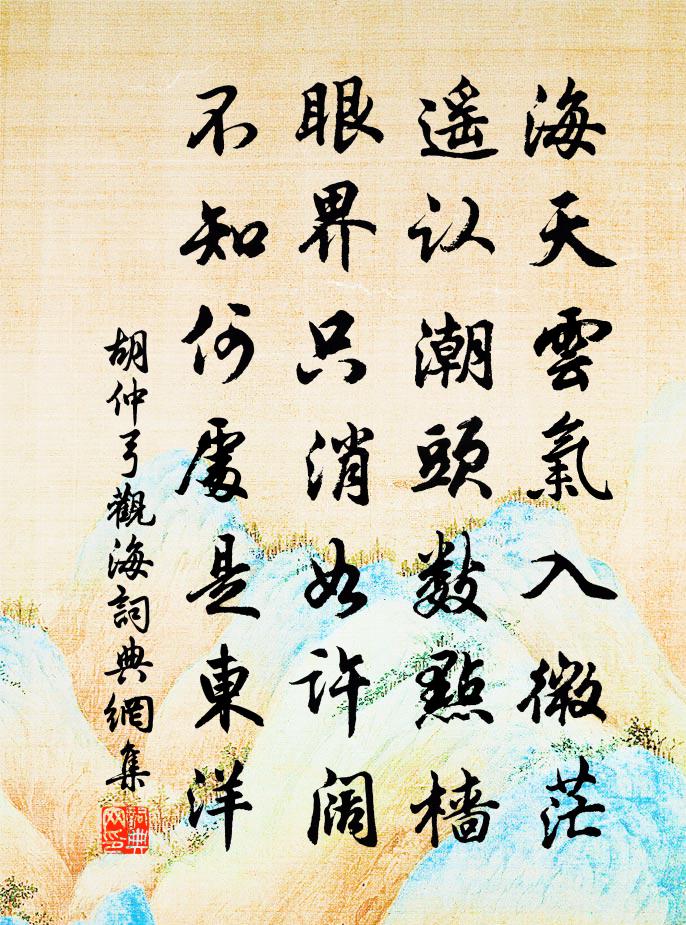 海天雲氣入微茫
遥认潮頭數點檣
眼界只消如许阔
不知何處是東洋
胡仲弓觀海詞典網集
詞典網印